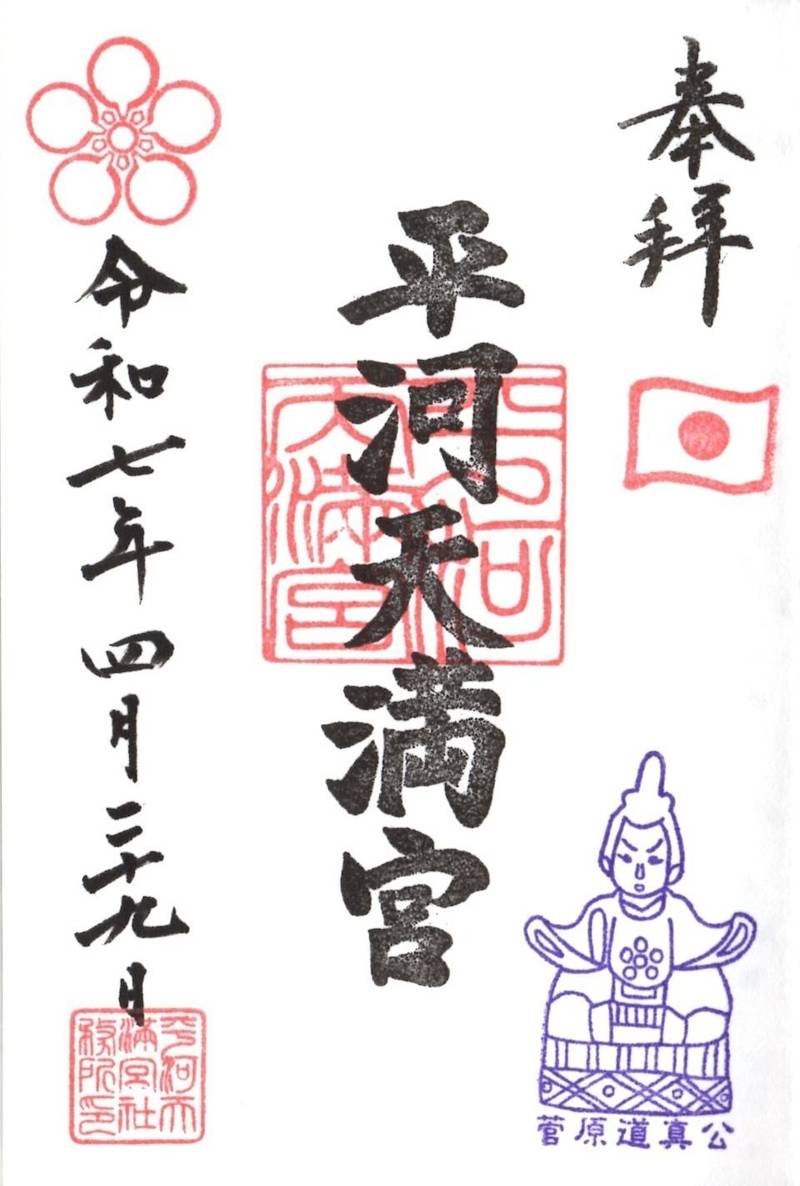 奉拝
平河天満宮
平河天満宮
令和七年四月二十九日
平河天
満宮社
務所印
菅原道真公